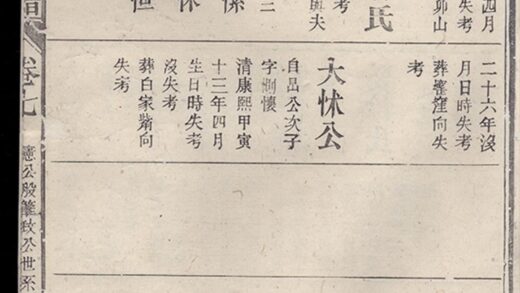 四月
失考
卯山
氏
考
與夫
二
係
二十六年沒
月日時失考
葬窪向失
考
大怵公
自昌公次子
字惻懷
清康熙甲寅
十三年四月
生日時失考
沒失考
葬白家嘴向
失考
卷七
憲公股肇政公世系